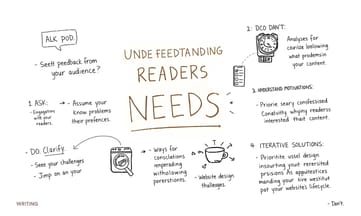 ALK POD.
- Sestt peedback from
your audience?
UNDE FEEDTANDING
READERS
NEEDS
1. ASK:
- Engagements
with your
readers.
→ Assume your
know problems
their prefences.
- DO: Clarify.
- Seet your challenges
- Jump on an your
- Ways for
conslations
withowing
- Website design
challenges.
2: DCO DAN'T:
Analyses for
what prodemsin
your content.
3. UNDERSTAND MOTIVATIONS:
- Priorie seary comfessized
Conativity whipimg readerss
interested that content.
4 ITERATIVE SOLUTIONS:
- Prioritite usel design
insurating your reserated
prosions As appuenticees
manding your hire westitut
pot your website's lifecycle.
WRITING
- Dan't.